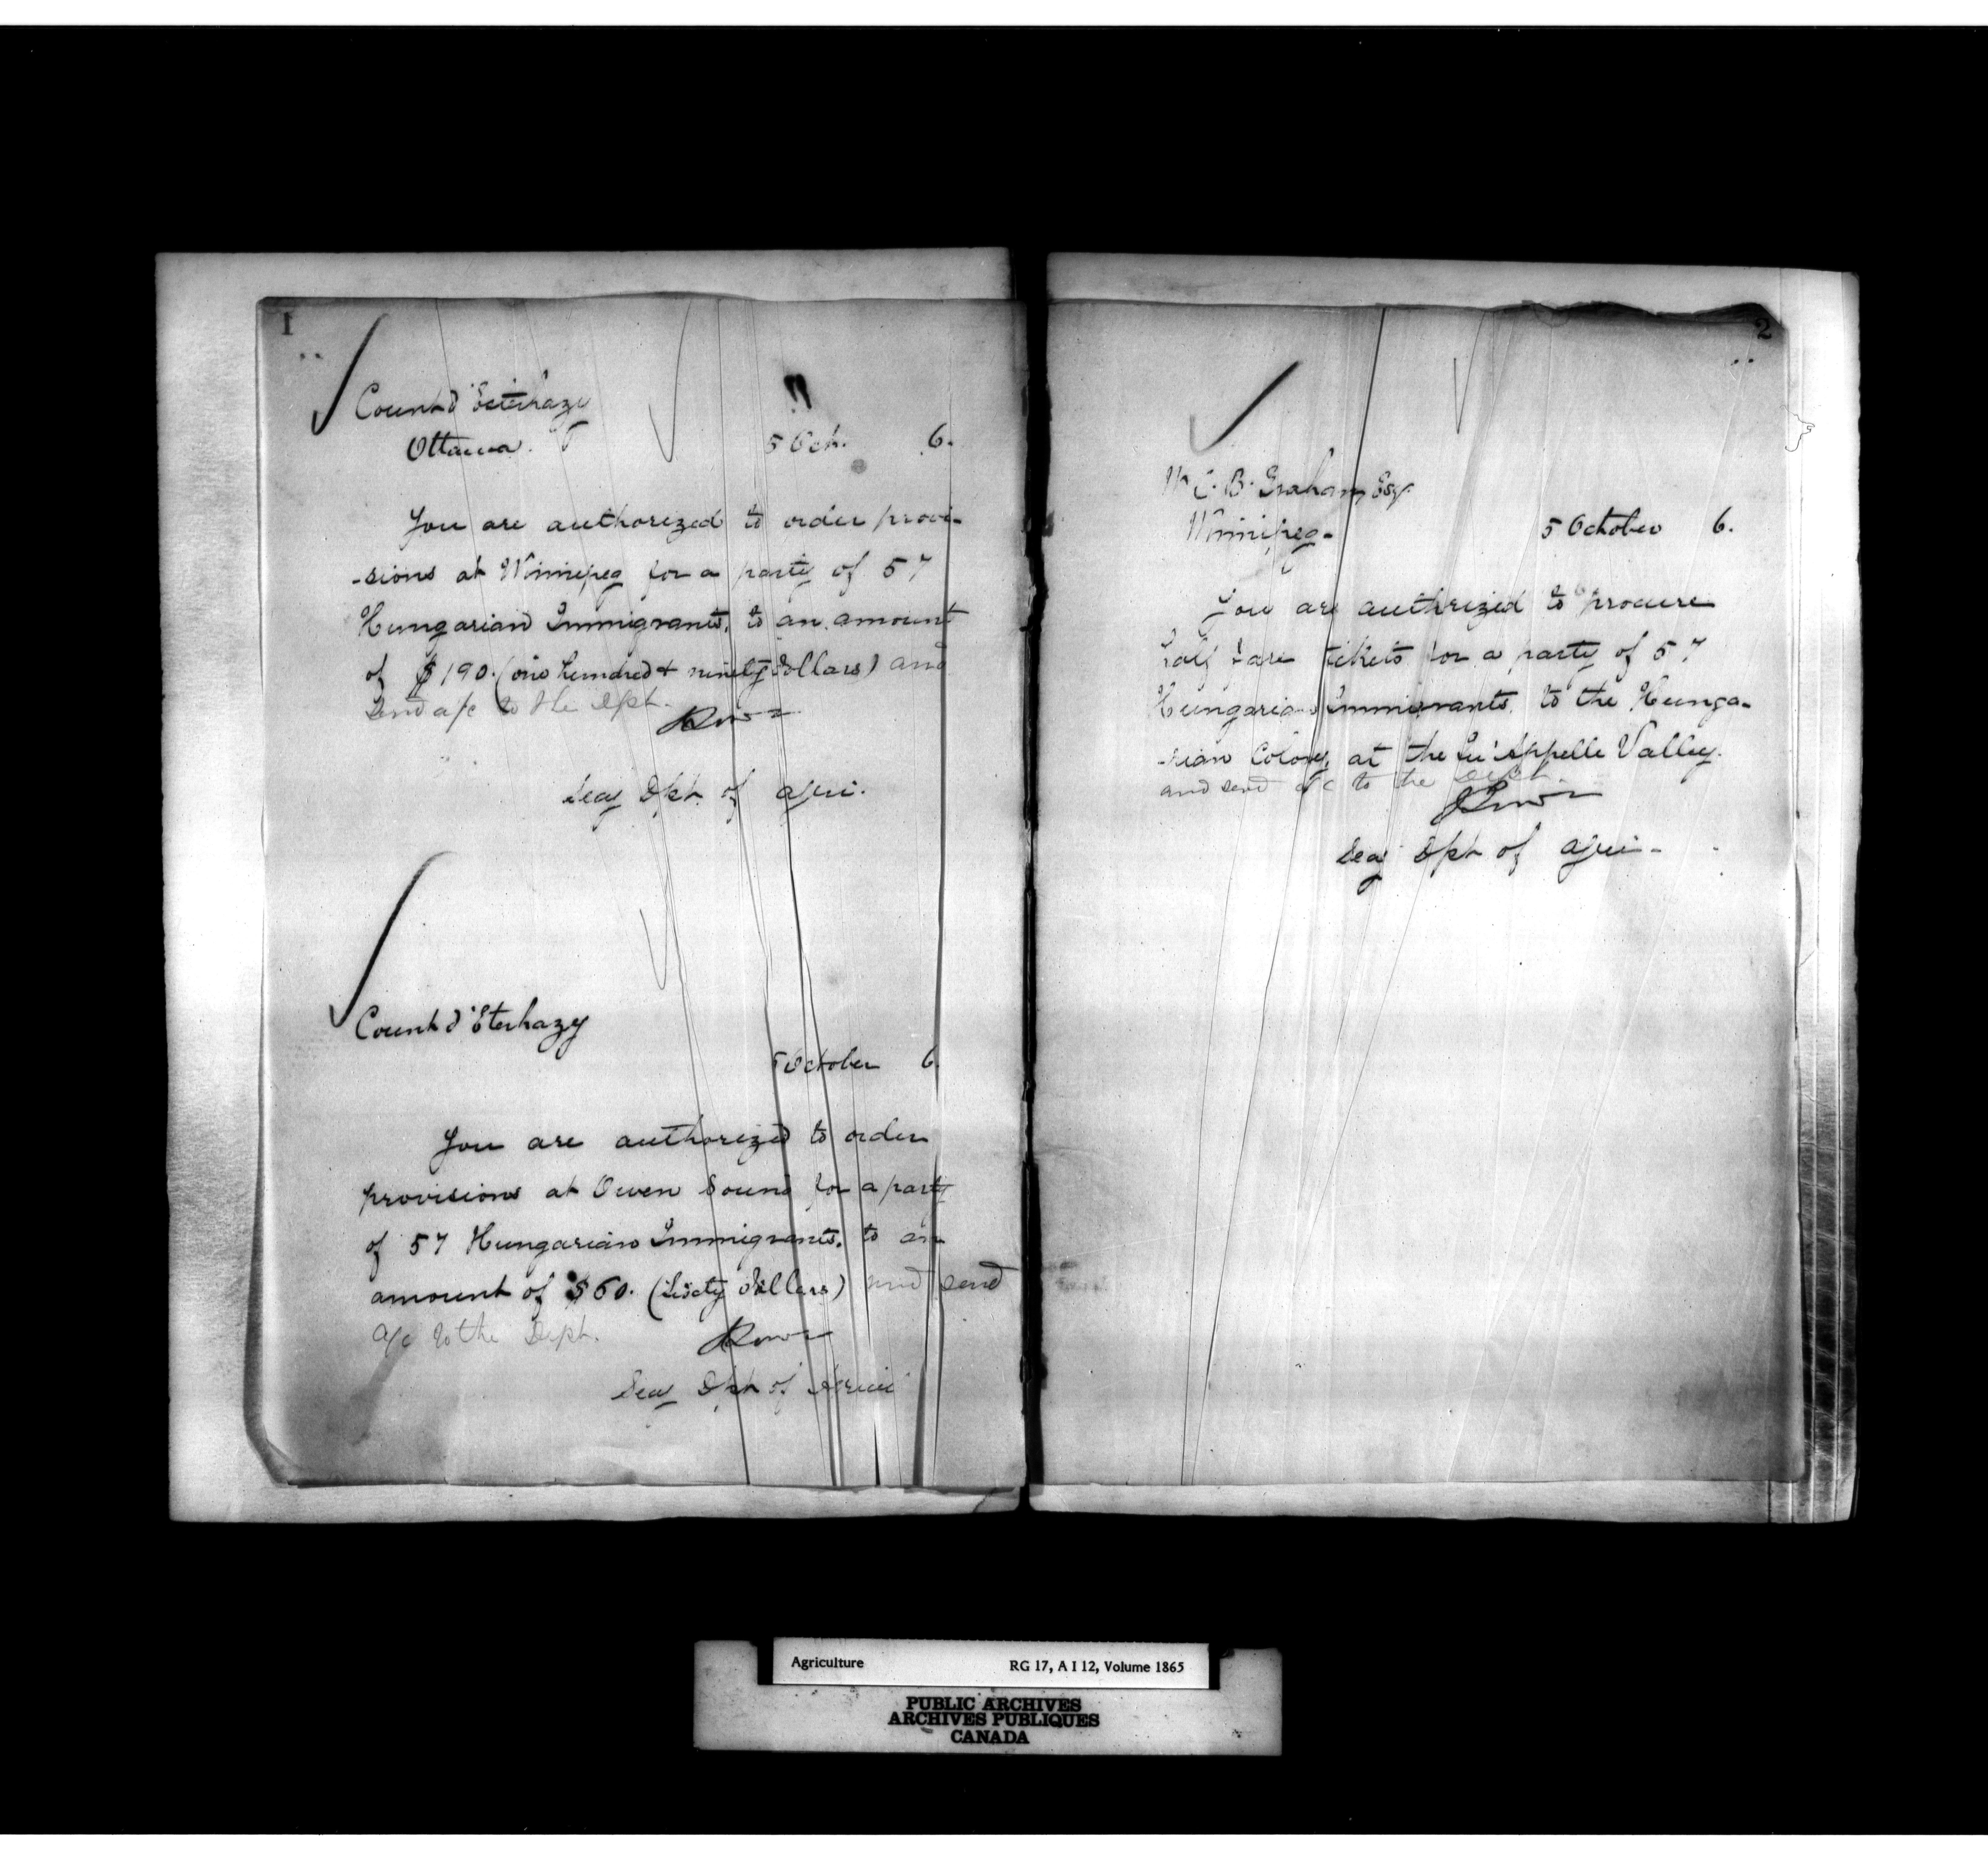 1
Count d'Esterhazy
Ottawa.
5 Oct. 6.
You are authorized to order provi-
-sions at Winnipeg for a party of 57
Hungarian Immigrants, to an amount
of $190. (one hundred & ninety dollars) and
send a/c to the Dpt.
Secy Dpt. of Agri.
Count d'Eterhazy
5 October 6.
You are authorized to order
provisions at Owen Sound for a party
of 57 Hungarian Immigrants, to an
amount of $60. (Sixty dollars) and send
a/c to the Dept.
Secy Dpt of Agric
2
W C. B. Graham, Esq.
Winnipeg.
5 October 6.
You are authorized to procure
half fare tickets for a party of 57
Hungarian Immigrants, to the Hunga-
-rian Colony, at the Qu'Appelle Valley.
and send a/c to the Dept.
Secy Dpt of Agri.
Agriculture RG 17, A I 12, Volume 1865
PUBLIC ARCHIVES
ARCHIVES PUBLIQUES
CANADA